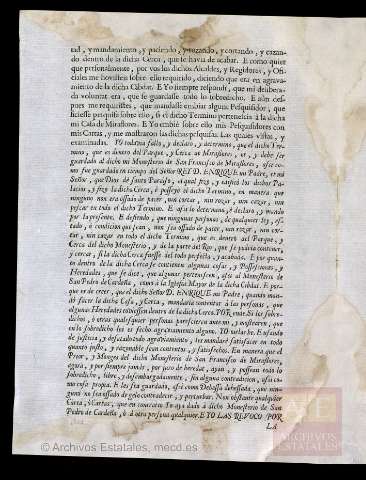 tad, y mandamiento, y paciendo, y rozando, y cortando, y cazan-
do dentro de la dicha Cerca, que se havia de acabar. E como quier
que personalmente, por vos los dichos Alcaldes, y Regidores, y Ofi-
ciales me hovisteis sobre ello requirido, diciendo que era en agravia-
miento de la dicha Cibdat. E Yo siempre respondí, que mi delibera-
da voluntat era, que se guardasse todo lo sobredicho. E aun des-
pues me requiristes, que mandasse embiar alguno Pesquisidor, que
ficiesse pesquisa sobre ello, si el dicho Termino pertenescia à la dicha
mi Casa de Miraflores. E Yo embié sobre ello mis Pesquisidores con
mis Cartas, y me mostraron las dichas pesquisas. Las quales vistas, y
examinadas. YO todavia fallo, y declaro, y determino, que el dicho Ter-
mino, que es dentro del Parque, y Cerca de Miraflores, es, y debe ser
guardado al dicho mi Monesterio de San Francisco de Miraflores, assi co-
mo fue guardado en tiempo del Señor REY D. ENRIQUE mi Padre, et mi
Señor, que Dios de santo Parayso, el qual fizo, y edificó los dichos Pa-
lacios, y fizo la dicha Cerca, è posseyó el dicho Termino, en manera que
ninguno non era osado de pacer, nin cortar, nin rozar, nin cazar, nin
pescar en todo el dicho Termino. E assi lo determino, è declaro, y mando
por la presente. E defiendo, que ningunas personas, de qualquier ley, es-
tado, ò condicion que sean, non sea osado de pacer, nin rozar, nin cor-
tar, nin cazar en todo el dicho Termino, que es dentro del Parque, y
Cerca del dicho Monesterio, y de la parte del Rio, que se pudiera contener,
y cercar, si la dicha Cerca fuesse del todo perfecta, y acabada. E por quan-
to dentro de la dicha Cerca se contienen algunas casas, y Possessiones, y
Heredades, que se dice, que algunas pertenescen, assi al Monesterio de
San Pedro de Cardeña, como à la Iglesia Mayor de la dicha Cibdat. E por-
que es de creer, que el dicho Señor D. ENRIQUE mi Padre, quando man-
dó facer la dicha Casa, y Cerca, mandaria contentar à las personas, que
algunas Heredades toviessen dentro de la dicha Cerca. POR ende Si los sobre-
dichos, ò otras qualesquier personas parescieren ante mi, y mostraren, que
en lo sobredicho les es fecho agraviamiento alguno. YO usarles he. E usando
de justicia, y desatando todo agraviamiento, les mandaré satisfacer en todo
quanto justo, y razonable sean contentos, y satisfechos. En manera que el
Prior, y Monges del dicho Monesterio de San Francisco de Miraflores,
agora, y por siempre jamás, por juro de heredat, ayan, y possean todo lo
sobredicho, libre, y desembargadamente, sin alguna contradicion, assi co-
mo cosa propia. E les sea guardada, assi como Dehessa dehessada, que nin-
guno no sea ossado de gelo contradecir, y perturbar. Non obstante qualquier
Carta, ò Cartas, que en contrario Yo aya dado à dicho Monesterio de San
Pedro de Cardeña, ò à otra persona qualquier. E YO LAS REVOCO POR
LA
© Archivos Estatales, mecd.es
ARCHIVOS
ESTATALES